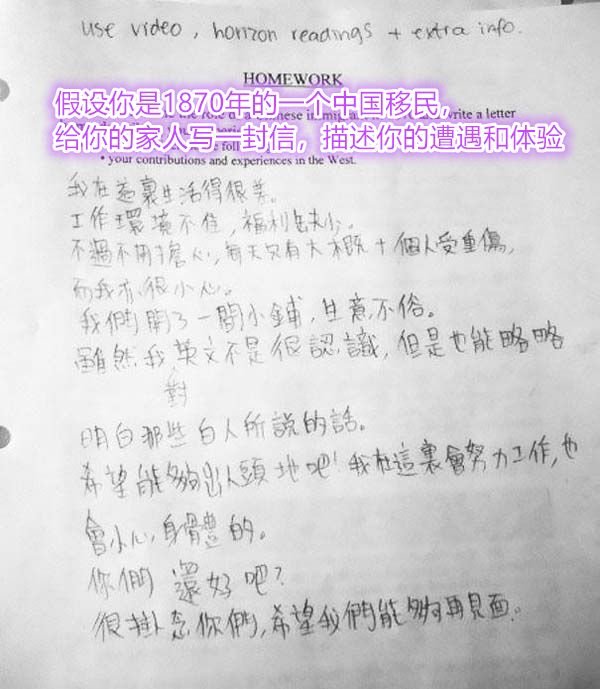 use video, horizon readings + extra info.
HOMEWORK
假设你是1870年的一个中国移民，
write a letter
给你的家人写一封信，描述你的遭遇和体验
• your contributions and experiences in the West.
我在這裏生活得很差。
工作環境不佳，福利缺少。
不過不用擔心，每天只有大概十個人受重傷，
而我亦很小心。
我們開了一間小鋪，生意不俗。
雖然我對英文不是很認識，但是也能略略
明白那些白人所說的話。
希望能夠出人頭地吧！我在這裏會努力工作，也
會小心身體的。
你們還好吧？
很掛念你們，希望我們能夠再見面。